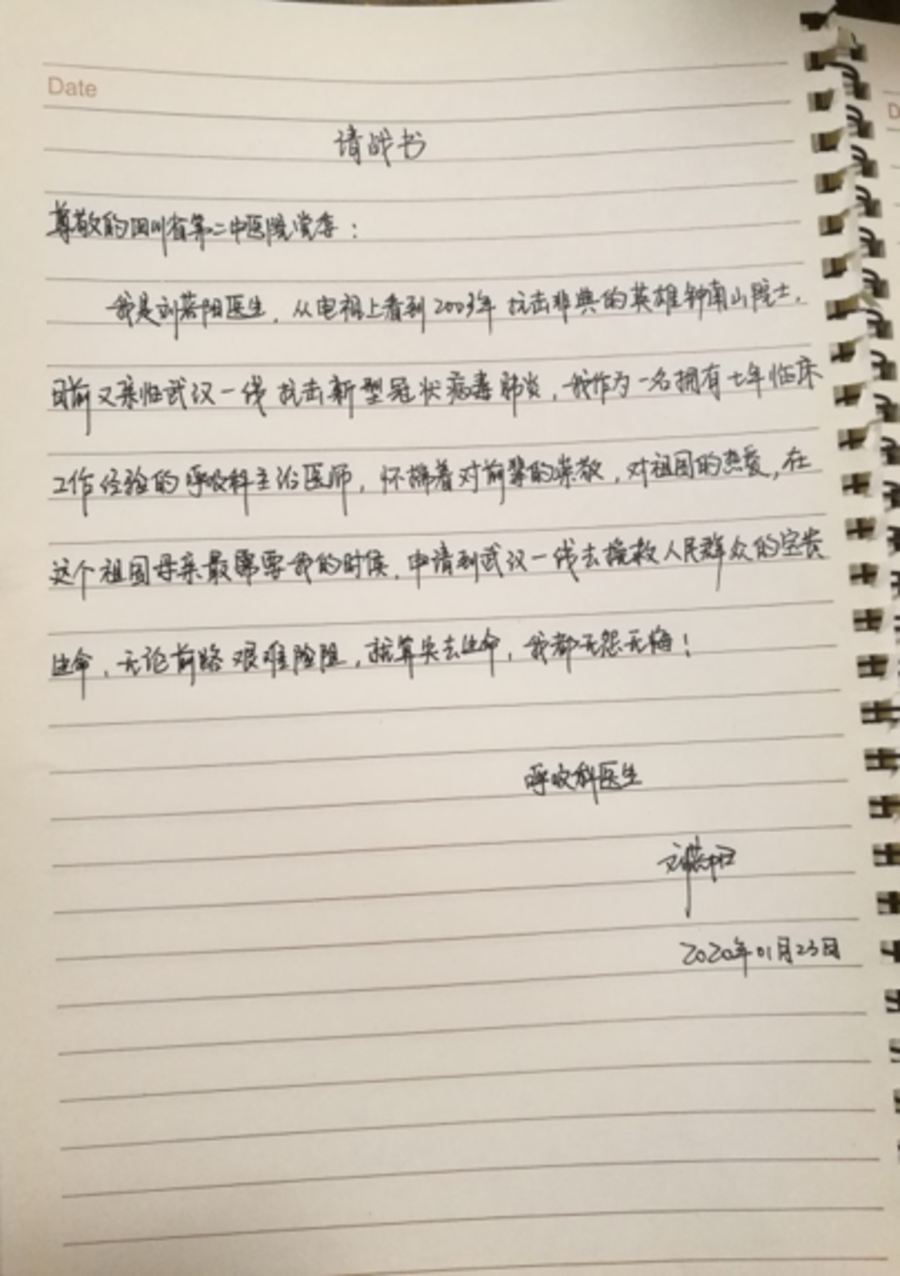 Date
请战书
尊敬的四川省第二中医院党委：
我是刘若阳医生，从电视上看到2003年抗击非典的英雄钟南山院士，
目前又亲临武汉一线抗击新型冠状病毒肺炎，我作为一名拥有七年临床
工作经验的呼吸科主治医师，怀揣着对前辈的崇敬，对祖国的热爱，在
这个祖国母亲最需要我的时候，申请到武汉一线去挽救人民群众的宝贵
生命，无论前路艰难险阻，就算失去生命，我都无怨无悔！
呼吸科医生
刘若阳
2020年01月23日